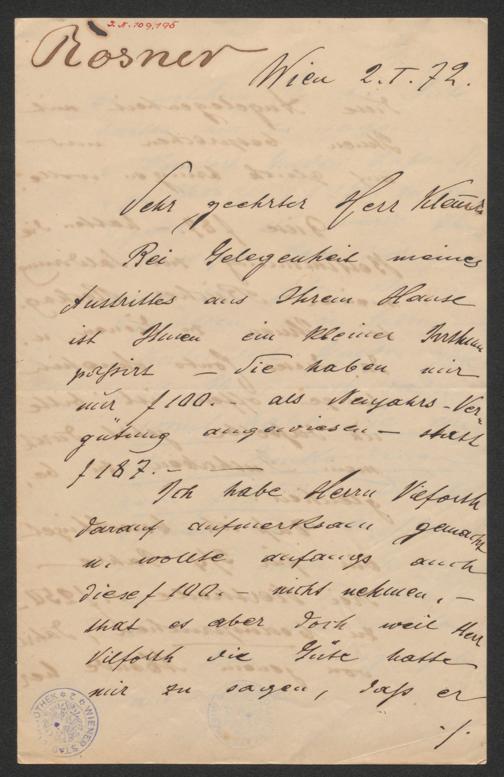 I.N. 109,195
Rosner
Wien 2. I. 72.
Sehr geehrter Herr
Bei Gelegenheit meines
Austrittes aus Ihrem Hause
ist Ihnen ein kleiner Irrthum
passirt – Sie haben mir
nur f 100.– als Neujahrs-Ver-
gütung angewiesen – statt
f 187.–
Ich habe Herrn Vilforth
darauf aufmerksam gemacht
u. wollte anfangs auch
diese f 100.– nicht nehmen, –
that es aber doch weil Herr
Vilforth die Güte hatte
mir zu sagen, daß er
./.
WIENER STADTBIBLIOTHEK